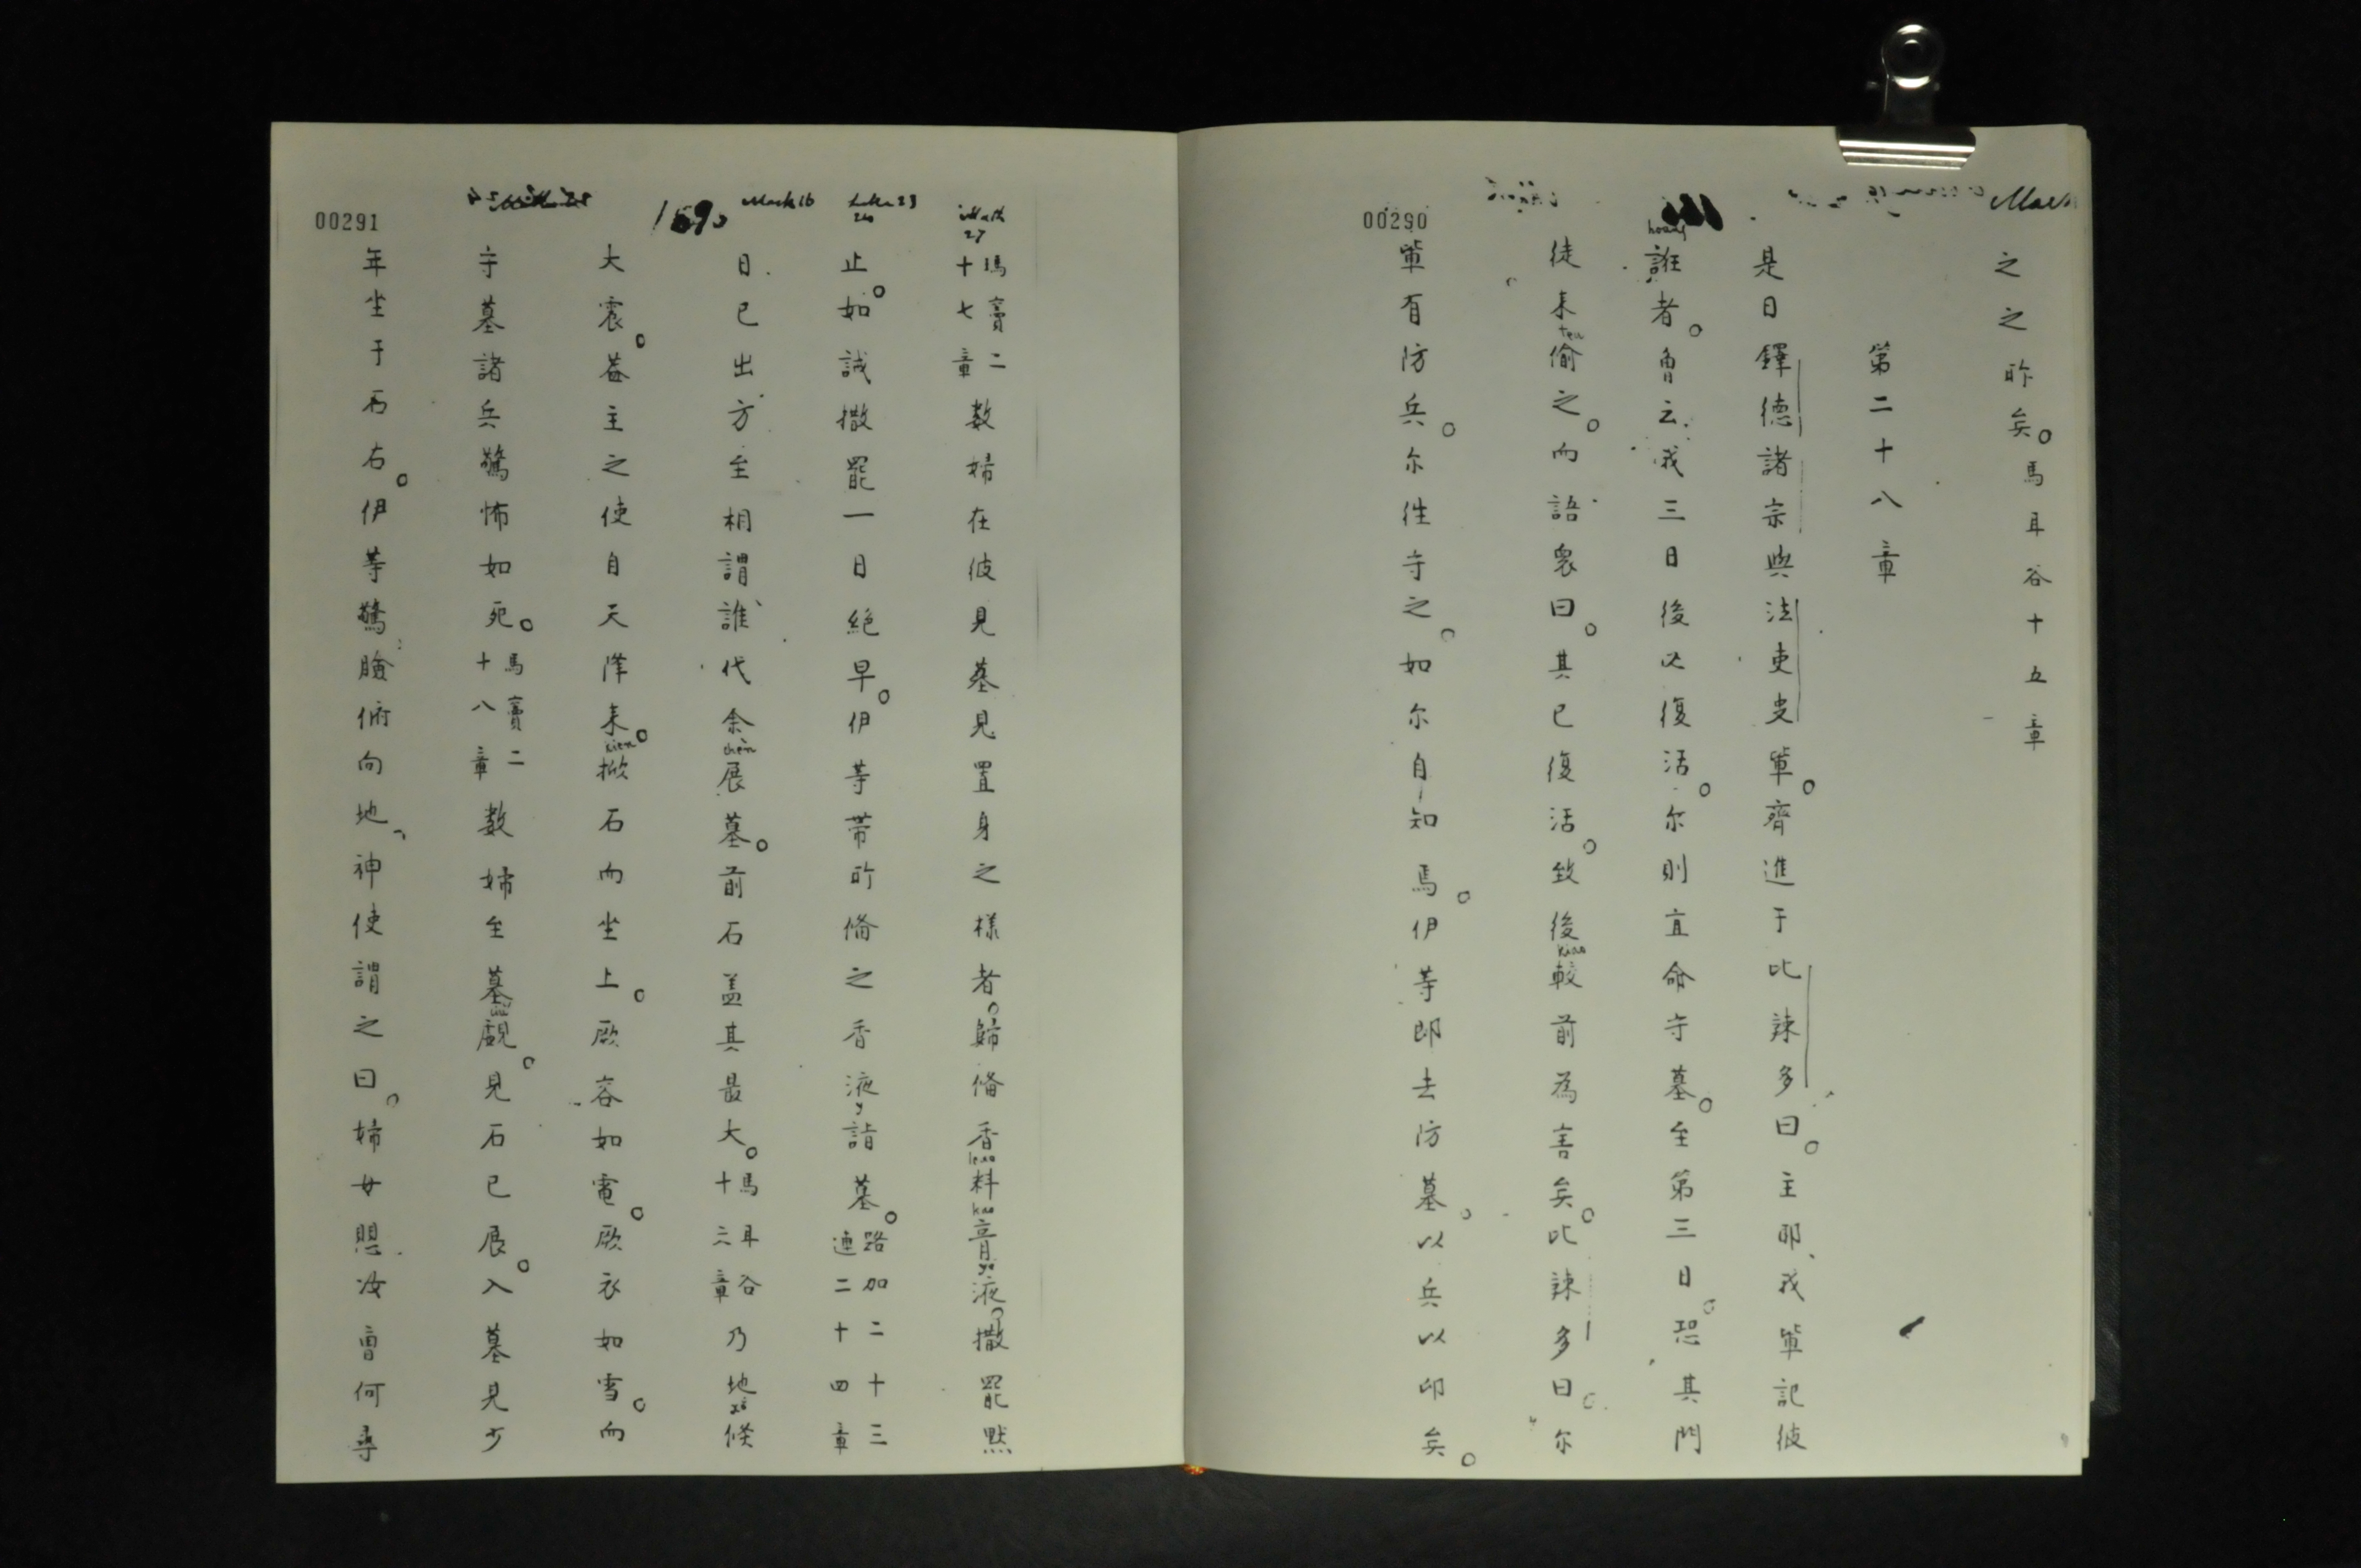 00290
之之昨矣。馬耳谷十五章
第二十八章
是日鐸德諸宗與法吏叓軰。齊進于比辣多曰。主耶、我軰記彼
誑者。曾云、我三日後必復活。尔則宜命守墓。至第三日。恐其門
hoang
徒来偷之。而語衆曰。其已復活。致後較前為害矣。比辣多曰。尔
teu
kiao
軰有防兵。尔往守之。如尔自知焉。伊等即去防墓。以兵以印矣。
00291
Math 27
瑪竇二十七章 数婦在彼見墓見置身之様者。歸備香料膏液。撒罷黙
leao
kao
ye
Luke 23
24
止。如誡撒罷一日絕早。伊等帯所備之香液詣墓。路加二十三連二十四章
y
Mark 16
日已出方至相謂誰代余展墓。前石盖其最大。馬耳谷十六章 乃地倏
chèn
xŏ
大震。盖主之使自天降来。掀石而坐上。厥容如電。厥衣如雪。而
xien
守墓諸兵驚怖如死。馬竇二十八章 数婦至墓覷。見石已展。入墓見少
年坐于石右。伊等驚臉俯向地、神使謂之曰。婦女愳。汝曹何尋